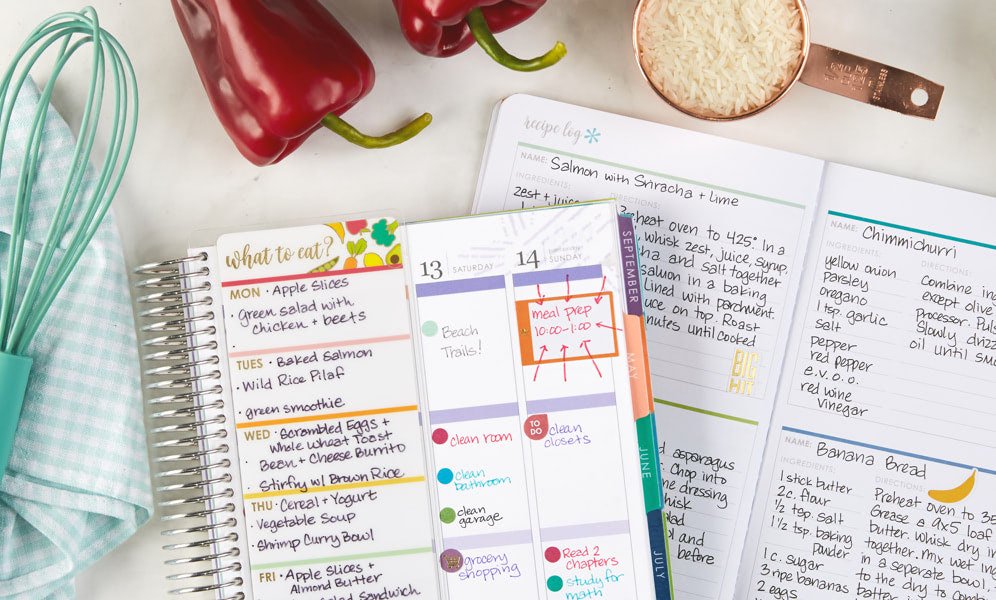 what to eat?
MON • Apple Slices
• Green salad with
chicken + beets
TUES • Baked Salmon
• Wild Rice Pilaf
• green smoothie
WED • Scrambled Eggs +
Whole Wheat Toast
• Bean + Cheese Burrito
• Stirfry w/ Brown Rice
THU • Cereal + Yogurt
• Vegetable Soup
• Shrimp Curry Bowl
FRI • Apple Slices +
Almond Butter
Salad Sandwich
13 SATURDAY
Beach
Trails!
clean room
clean
bathroom
clean
garage
grocery
shopping
14 SUNDAY
meal prep
10:00-1:00
TO
DO
clean
closets
Read 2
chapters
study for
math
SEPTEMBER
MAY
JUNE
JULY
recipe log
NAME: Salmon with Sriracha + lime
INGREDIENTS:
zest + juice
DIRECTIONS:
heat oven to 425°. In a
whisk zest, juice, syrup,
and salt together
salmon in a baking
Lined with parchment.
on top. Roast
until cooked
BIG
HIT
asparagus
Chop into
dressing
and
before
NAME: Chimmichurri
INGREDIENTS:
yellow onion
parsley
oregano
1 tsp garlic
salt
pepper
red pepper
e.v.o.o.
red wine
vinegar
DIRECTIONS:
Combine
except olive
processor.
Slowly
oil until
NAME: Banana Bread
INGREDIENTS:
1 stick butter
2 c. flour
1/2 tsp salt
1 1/2 tsp. baking
powder
1 c. sugar
3 ripe bananas
2 eggs
DIRECTIONS:
Preheat oven to
Grease a 9x5 loaf
butter. Whisk dry
together. Mix wet
in a seperate bowl.
to the dry to
batter